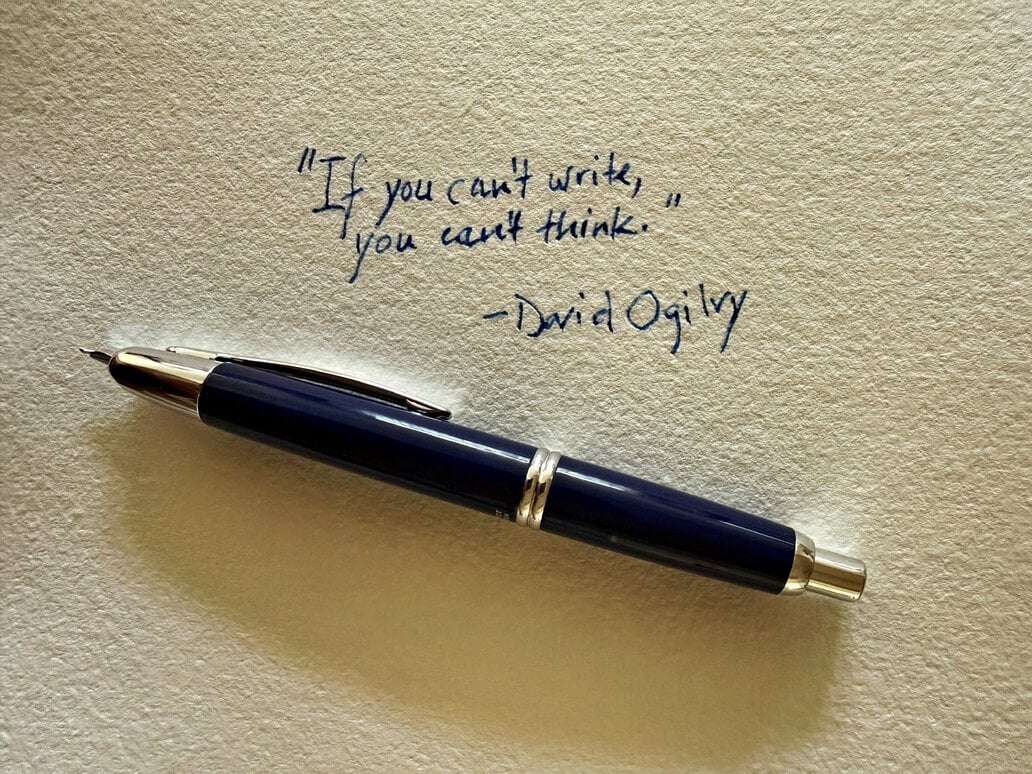 "If you can't write,
you can't think."
-David Ogilvy